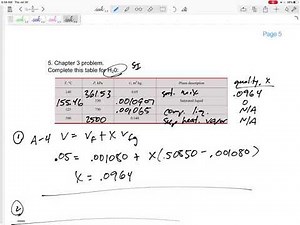 Page 5
5. Chapter 3 problem.
Complete this table for H₂0: SI
T, °C P, kPa v, m³/kg Phase description quality, x
140 361.53 0.05 sat. mix .0964
155.46 550 .001097 Saturated liquid 0
125 750 .001065 comp. liq. N/A
500 2500 0.140 Sup. heat. vapor N/A
① A-4 V = Vf + X Vfg
.05 = .001080 + X(.50850 - .001080)
X = .0964
②